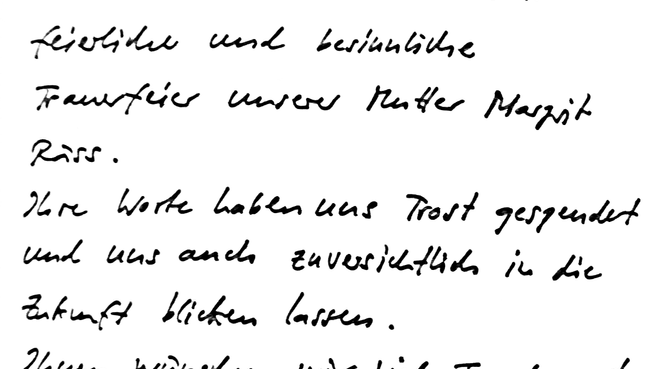 feierliche und besinnliche
Trauerfeier unserer Mutter Margrit
Rüss.
Ihre Worte haben uns Trost gespendet
und uns auch zuversichtlich in die
Zukunft blicken lassen.